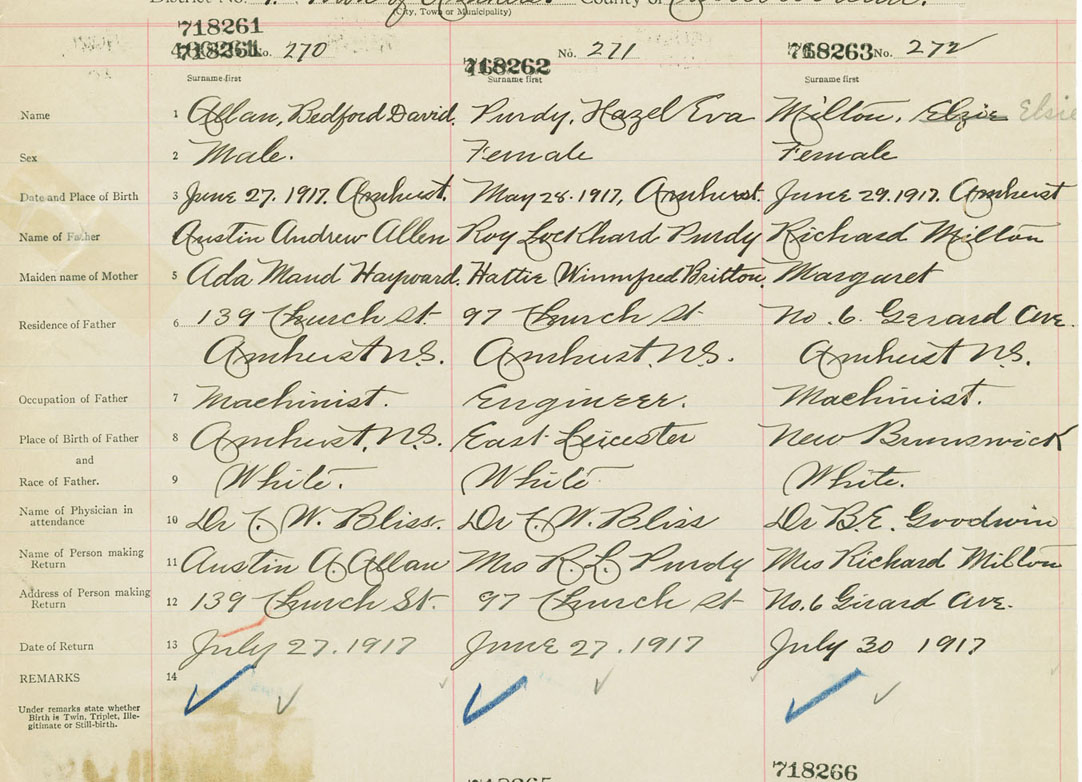 District No. Town of County of
(City, Town or Municipality)
718261
718261 No. 270 718262 No. 271 718263 No. 272
Surname first Surname first Surname first
Name 1 Allan, Bedford David. Purdy, Hazel Eva Milton, Elzie Elsie
Sex 2 Male. Female Female
Date and Place of Birth 3 June 27. 1917. Amherst. May 28. 1917, Amherst. June 29. 1917. Amherst
Name of Father 4 Austin Andrew Allen Roy Lockhard Purdy Richard Milton
Maiden name of Mother 5 Ada Maud Hayward. Hattie Winnifred Britton. Margaret
Residence of Father 6 139 Church St. 97 Church St No. 6 Gerard Ave.
Amherst N.S. Amherst N.S. Amherst N.S.
Occupation of Father 7 Machinist. Engineer. Machinist.
Place of Birth of Father 8 Amherst, N.S. East Leicester New Brunswick
and
Race of Father. 9 White. White White.
Name of Physician in
attendance 10 Dr C. W. Bliss. Dr C. W. Bliss Dr B.E. Goodwin
Name of Person making
Return 11 Austin A. Allan Mrs R. L. Purdy Mrs Richard Milton
Address of Person making
Return 12 139 Church St. 97 Church St No. 6 Girard Ave.
Date of Return 13 July 27. 1917 June 27. 1917 July 30 1917
REMARKS 14
Under remarks state whether
Birth is Twin, Triplet, Ille-
gitimate or Still-birth.
718265 718266